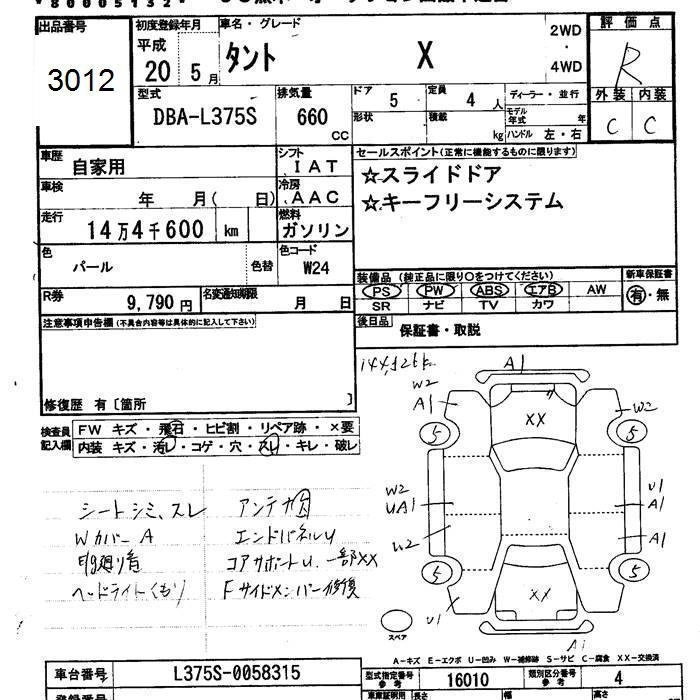 80005132
出品番号
3012
初度登録年月
平成
20 5月
車名・グレード
タント X
2WD
・
4WD
評価点
R
型式
DBA-L375S
排気量
660
CC
ドア
5
定員
4 人
形状
積載
kg
ディーラー・並行
モデル年式 年
ハンドル 左・右
外装 内装
C C
車歴
自家用
シフト
IAT
車検
年 月( 日)
冷房
AAC
走行
14万4千600 km
燃料
ガソリン
色
パール
色替
色コード
W24
R券
9,790円
名変通知期限
月 日
セールスポイント(正常に機能するものに限ります)
☆スライドドア
☆キーフリーシステム
装備品(純正品に限り○をつけてください)
PS PW ABS エアB AW
SR ナビ TV カワ
新車保証書
有・無
後日品
保証書・取説
注意事項申告欄(不具合内容等は具体的に記入して下さい)
修復歴 有〔箇所 〕
検査員記入欄
FW キズ・飛石・ヒビ割・リペア跡・×要
内装 キズ・汚レ・コゲ・穴・スレ・キレ・破レ
シートシミ、スレ
Wカバー A
ヘッドライトくもり
アンテナ
エンドパネルU
コアサポートU、一部XX
Fサイドメンバー修復
144,126k
A1
W2
A1
W2
XX
5
5
W2
UA1
U1
A1
W2
A1
5
5
XX
U1
A1
スペア
A-キズ E-エクボ U-凹み W-補修跡 S-サビ C-腐食 XX-交換済
車台番号
L375S-0058315
型式指定番号
参考
16010
類別区分番号
参考
4
登録番号
車庫証明用
長さ
幅
高さ